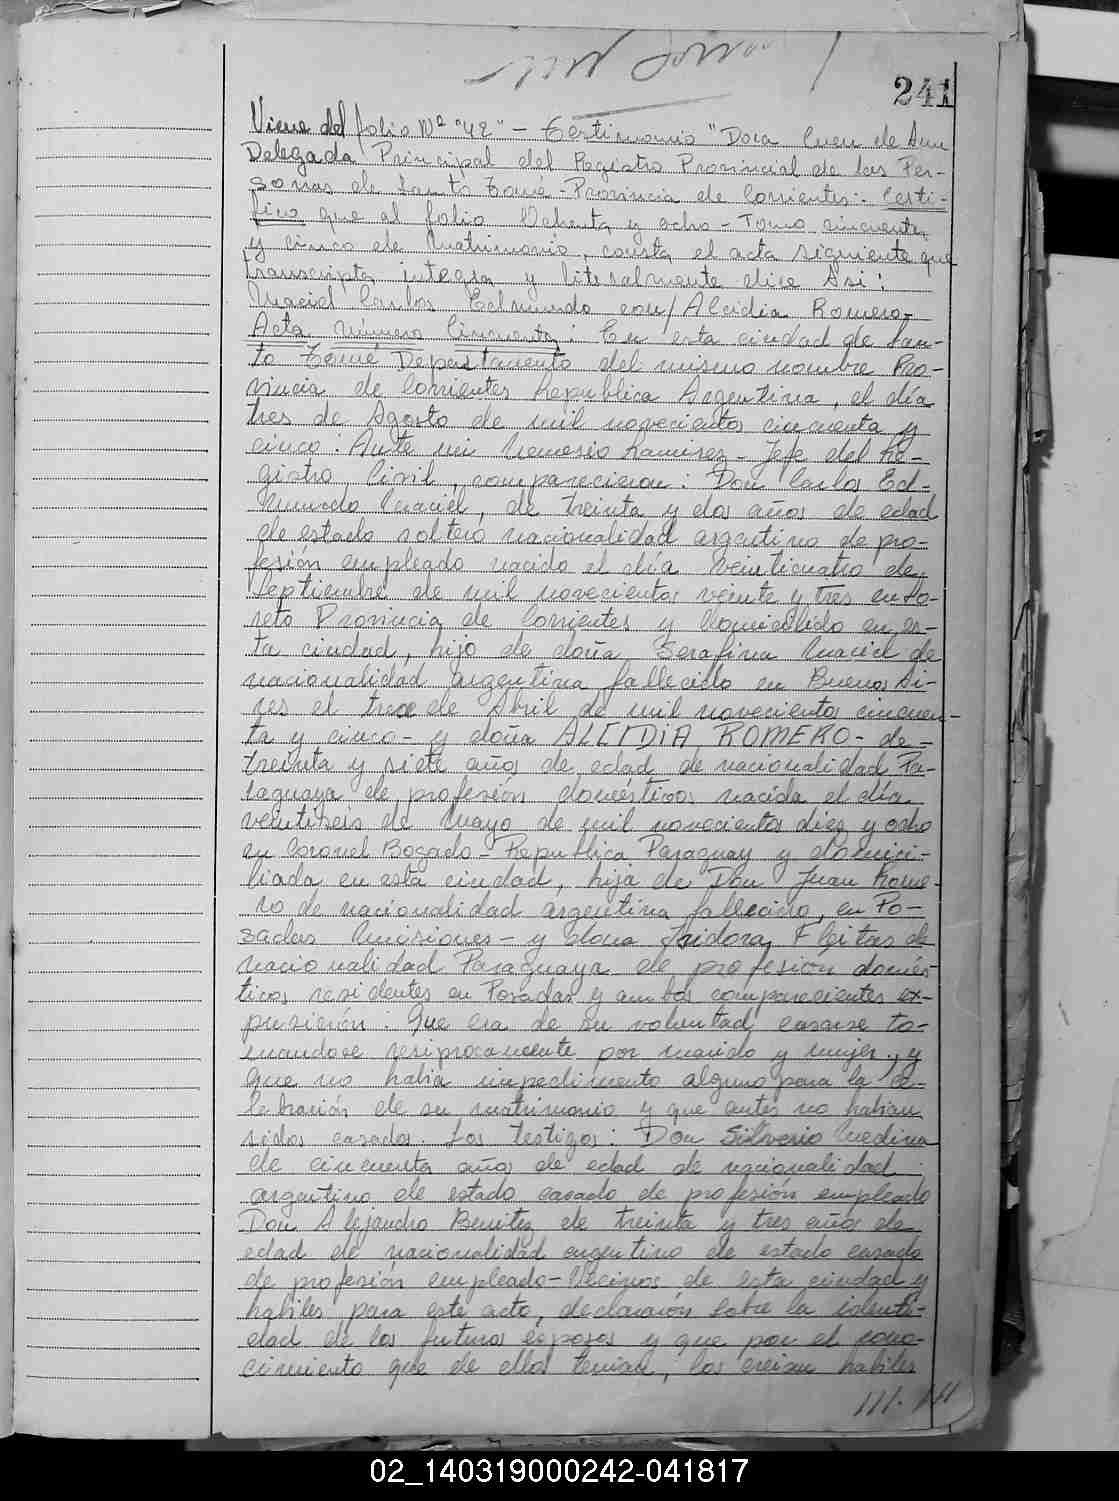 241
Viene del folio Nº "42" - Testimonio "Dora Cuen de
Delegada Principal del Registro Provincial de las Per-
sonas de Santo Tomé - Provincia de Corrientes: Certi-
fico que al folio Ochenta y ocho - Tomo cincuenta
y cinco de Matrimonio, consta el acta siguiente que
transcripta integra y literalmente dice Asi:
Maciel Carlos Edmundo con/Alcidia Romero-
Acta número Cincuenta: En esta ciudad de San-
to Tomé Departamento del mismo nombre Pro-
vincia de Corrientes Republica Argentina, el día
tres de Agosto de mil novecientos cincuenta y
cinco: Ante mi Nemesio Ramirez - Jefe del Re-
gistro Civil, comparecieron: Don Carlos Ed-
mundo Maciel, de treinta y dos años de edad
de estado soltero nacionalidad argentino de pro-
fesión empleado nacido el día veinticuatro de
Septiembre de mil novecientos veinte y tres en Lo-
reto Provincia de Corrientes y domiciliado en es-
ta ciudad, hijo de doña Serafina Maciel de
nacionalidad argentina fallecida en Buenos Ai-
res el trece de Abril de mil novecientos cincuen-
ta y cinco - y doña ALCIDIA ROMERO - de
treinta y siete años de edad de nacionalidad Pa-
raguaya de profesión domésticos nacida el día
veintiseis de Mayo de mil novecientos diez y ocho
en Coronel Bogado - Republica Paraguay y domici-
liada en esta ciudad, hija de Don Juan Rome-
ro de nacionalidad argentina fallecido, en Po-
sadas Misiones - y dona Isidora Fleitas de
nacionalidad Paraguaya de profesión domés-
ticos residentes en Posadas y ambos comparecientes ex-
presición: Que era de su voluntad casarse to-
mandose resiprocamente por marido y mujer, y
que no habia impedimento alguno para la ce-
lebración de su matrimonio y que antes no habian
sidos casados. Los testigos: Don Silverio Medina
de cincuenta años de edad de nacionalidad
argentino de estado casado de profesión empleado
Don Alejandro Benitez de treinta y tres años de
edad de nacionalidad argentino de estado casado
de profesión empleado - Vecinos de esta ciudad y
habiles para este acto, declaración sobre la identi-
dad de los futuros esposos y que por el cono-
cimiento que de ellos tenian, los creian habiles
///.
02_140319000242-041817